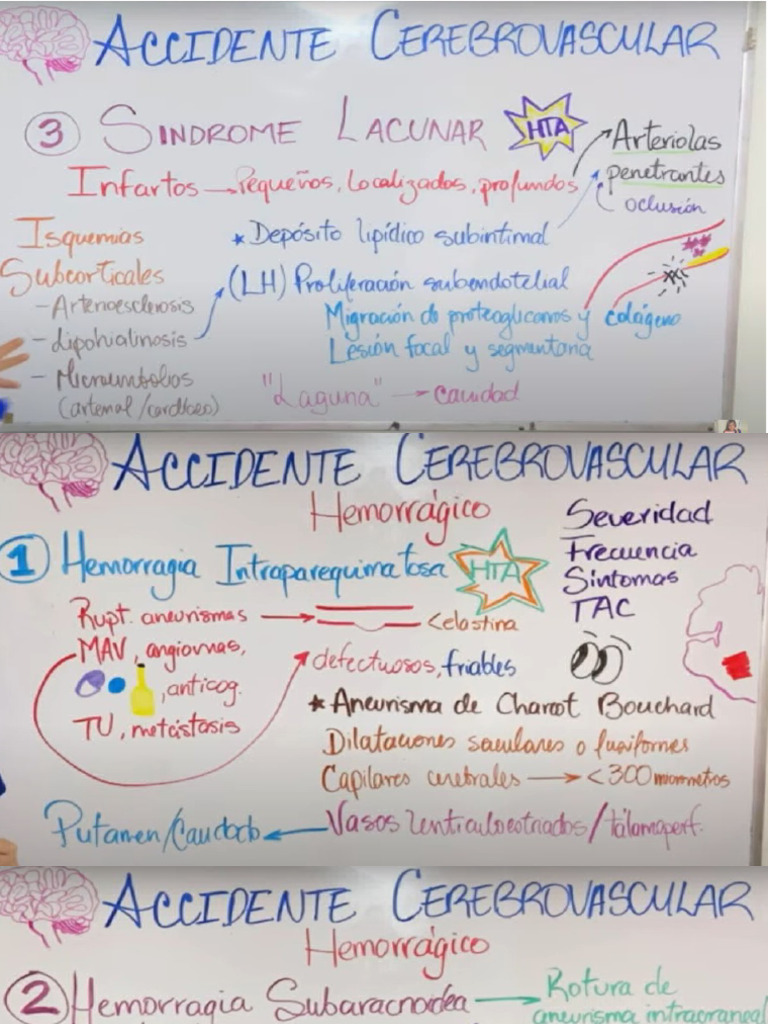 ACCIDENTE CEREBROVASCULAR
3 SINDROME LACUNAR HTA
Infartos → Pequeños, Localizados, profundos
Arteriolas
penetrantes
oclusión
Isquemias
Subcorticales
- Arterioesclerosis
- Lipohialinosis
- Microembolos
(arterial/cardiaco)
* Depósito lipídico subintimal
(LH) Proliferación subendotelial
Migración de proteoglicanos y colágeno
Lesión focal y segmentaria
"Laguna" → cavidad
ACCIDENTE CEREBROVASCULAR
Hemorrágico
1 Hemorragia Intraparequimatosa HTA
Severidad
Frecuencia
Síntomas
TAC
Rupt. aneurismas →
MAV, angiomas,
, anticog.
TU, metástasis
<elastina
defectuosos, friables
* Aneurisma de Charcot Bouchard
Dilataciones saculares o fusiformes
Capilares cerebrales → <300 micrometros
Putamen/Caudado ← Vasos lenticuloestriados/talamoperf.
ACCIDENTE CEREBROVASCULAR
Hemorrágico
2 Hemorragia Subaracnoidea → Rotura de
aneurisma intracraneal